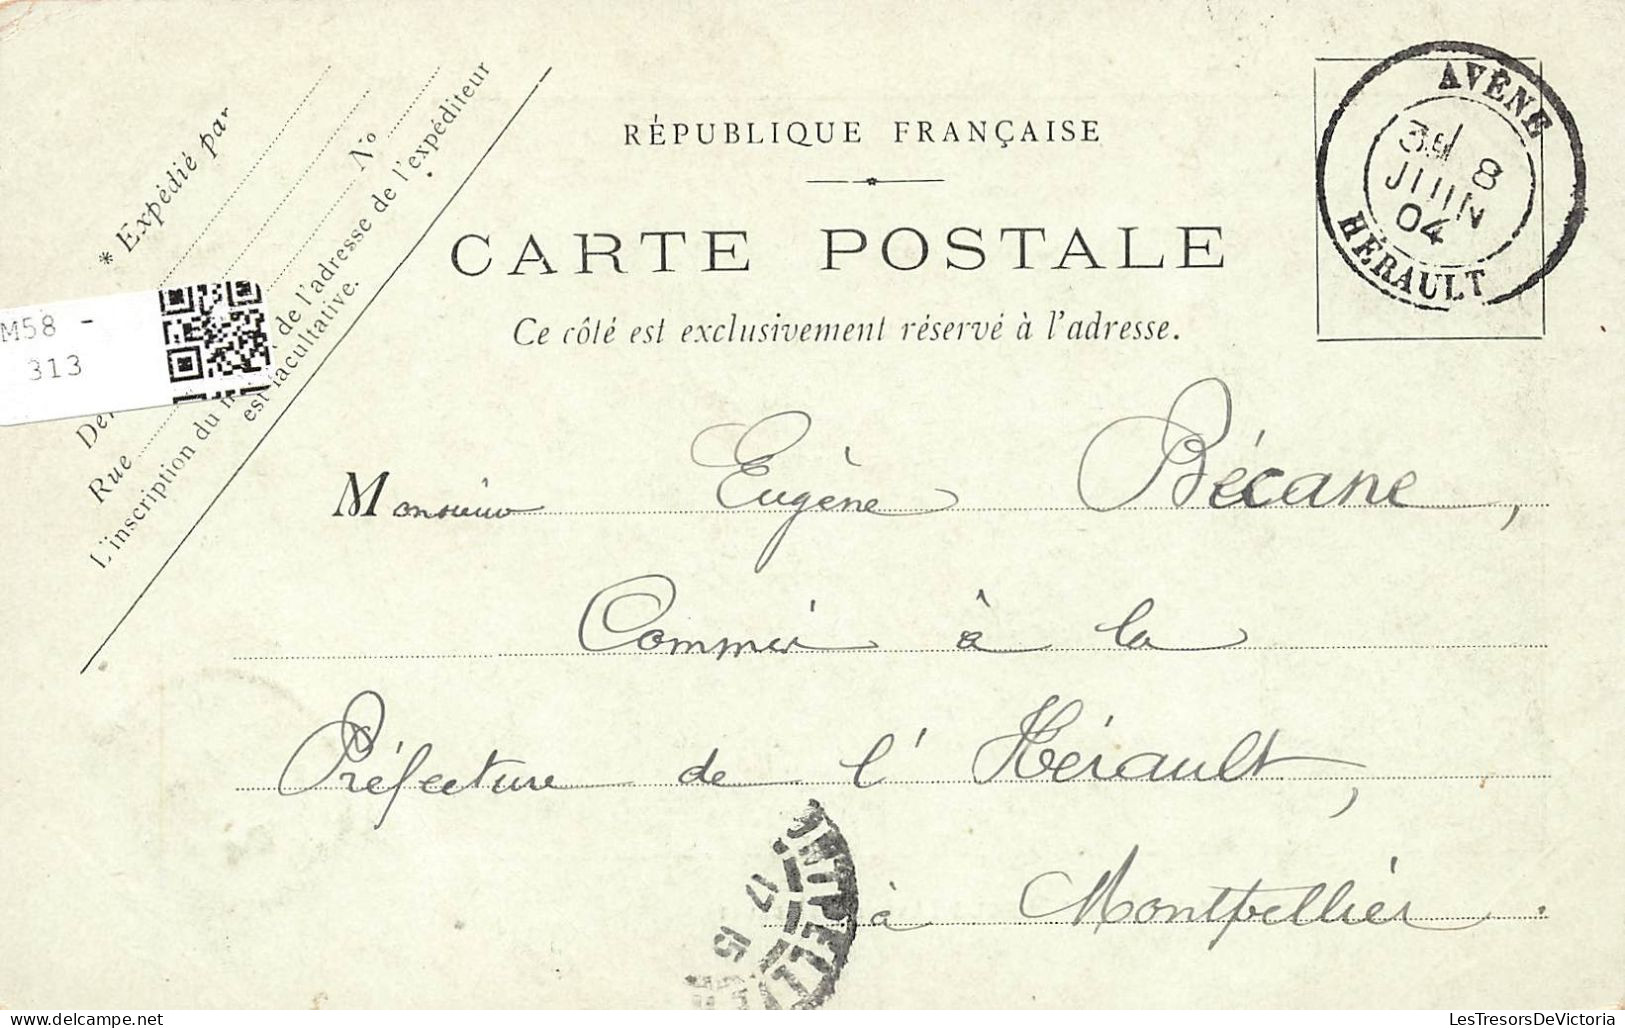 * Expédié par
Nº
Rue
L'inscription du
de l'adresse de l'expéditeur
est facultative.
M58 -
313
RÉPUBLIQUE FRANÇAISE
CARTE POSTALE
Ce côté est exclusivement réservé à l'adresse.
AVÈNE
8
JUIN
04
HÉRAULT
Monsieur Eugène Bécane,
Commis à la
Préfecture de l'Hérault,
à Montpellier.
17 15
LesTresorsDeVictoria